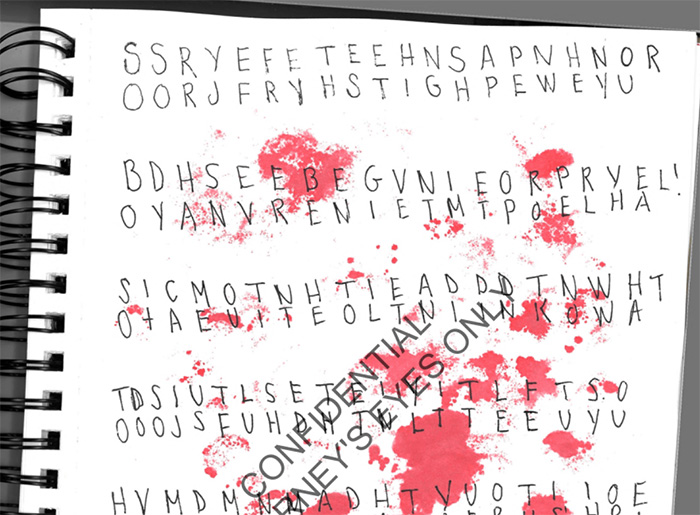 SSRYEFETEEHNSAPNHNOR
OORJFRYHSTIGHPEWEYU
BDHSEEBEGVNIEORPRYEL!
OYANVRENIETMTPOELHA
SICMOTNHTIEADDDTNWHT
OtAEUITEOLTNIINKOWA
TDSIUTLSETEIYITLFTSO
OOOJSFUHDHTNLTTEEUYU
CONFIDENTIAL
RNEY'S EYES ONLY